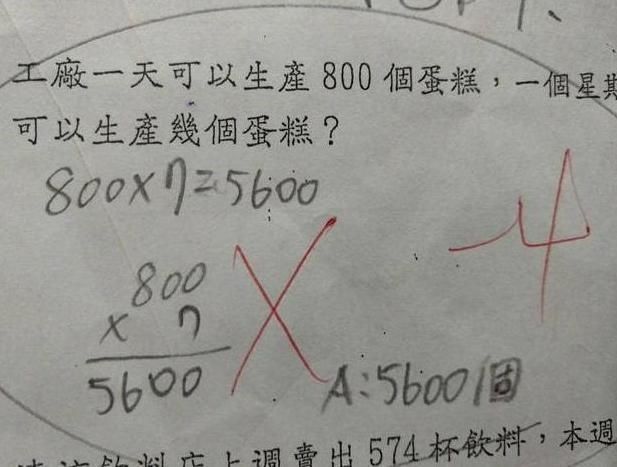 工廠一天可以生產 800 個蛋糕，一個星期
可以生產幾個蛋糕？
800×7=5600
800
× 7
5600
-4
A:5600個
飲料店上週賣出 574 杯飲料，本週